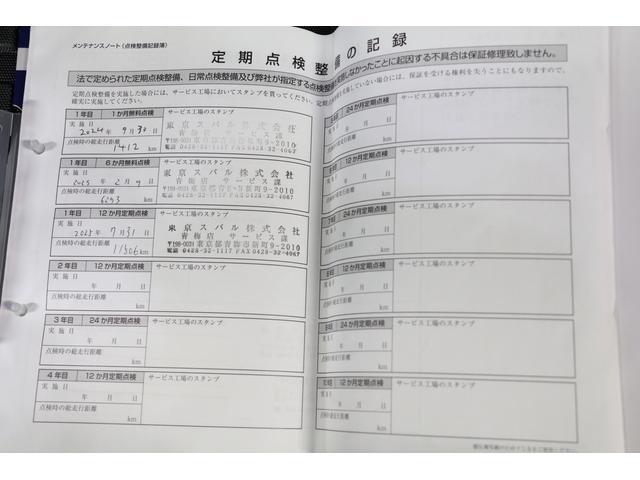 メンテナンスノート（点検整備記録簿）
定期点検整備の記録
法で定められた定期点検整備、日常点検整備及び弊社が指定する点検整備
しなかったことに起因する不具合は保証修理致しません。
定期点検整備を実施した場合には、サービス工場においてスタンプを貰ってください。定期
実施していない場合には、保証を受ける権利を失うことにもなりますので、
確実に実施してください。
1年目 1か月無料点検 サービス工場のスタンプ
実施日
2024年 9月30日
点検時の総走行距離
1412 km
東京スバル株式会社
青梅店 サービス課
〒198-0031 東京都青梅市新町9-2010
電話 0428-32-1117 FAX 0428-32-4067
1年目 6か月無料点検 サービス工場のスタンプ
実施日
2025年 2月9日
点検時の総走行距離
6293 km
東京スバル株式会社
青梅店 サービス課
〒198-0031 東京都青梅市新町9-2010
電話 0428-32-1117 FAX 0428-32-4067
1年目 12か月定期点検 サービス工場のスタンプ
実施日
2025年 7月31日
点検時の総走行距離
11506 km
東京スバル株式会社
青梅店 サービス課
〒198-0031 東京都青梅市新町9-2010
電話 0428-32-1117 FAX 0428-32-4067
2年目 12か月定期点検 サービス工場のスタンプ
実施日
年 月 日
点検時の総走行距離
km
3年目 24か月定期点検 サービス工場のスタンプ
実施日
年 月 日
点検時の総走行距離
km
4年目 12か月定期点検 サービス工場のスタンプ
実施日
年 月 日
点検時の総走行距離
km
24か月定期点検 サービス工場のスタンプ
年 月 日
総走行距離
km
12か月定期点検 サービス工場のスタンプ
年 月 日
総走行距離
km
24か月定期点検 サービス工場のスタンプ
年 月 日
総走行距離
km
12か月定期点検 サービス工場のスタンプ
年 月 日
総走行距離
km
24か月定期点検 サービス工場のスタンプ
年 月 日
総走行距離
km
12か月定期点検 サービス工場のスタンプ
年 月 日
点検時の総走行距離
km